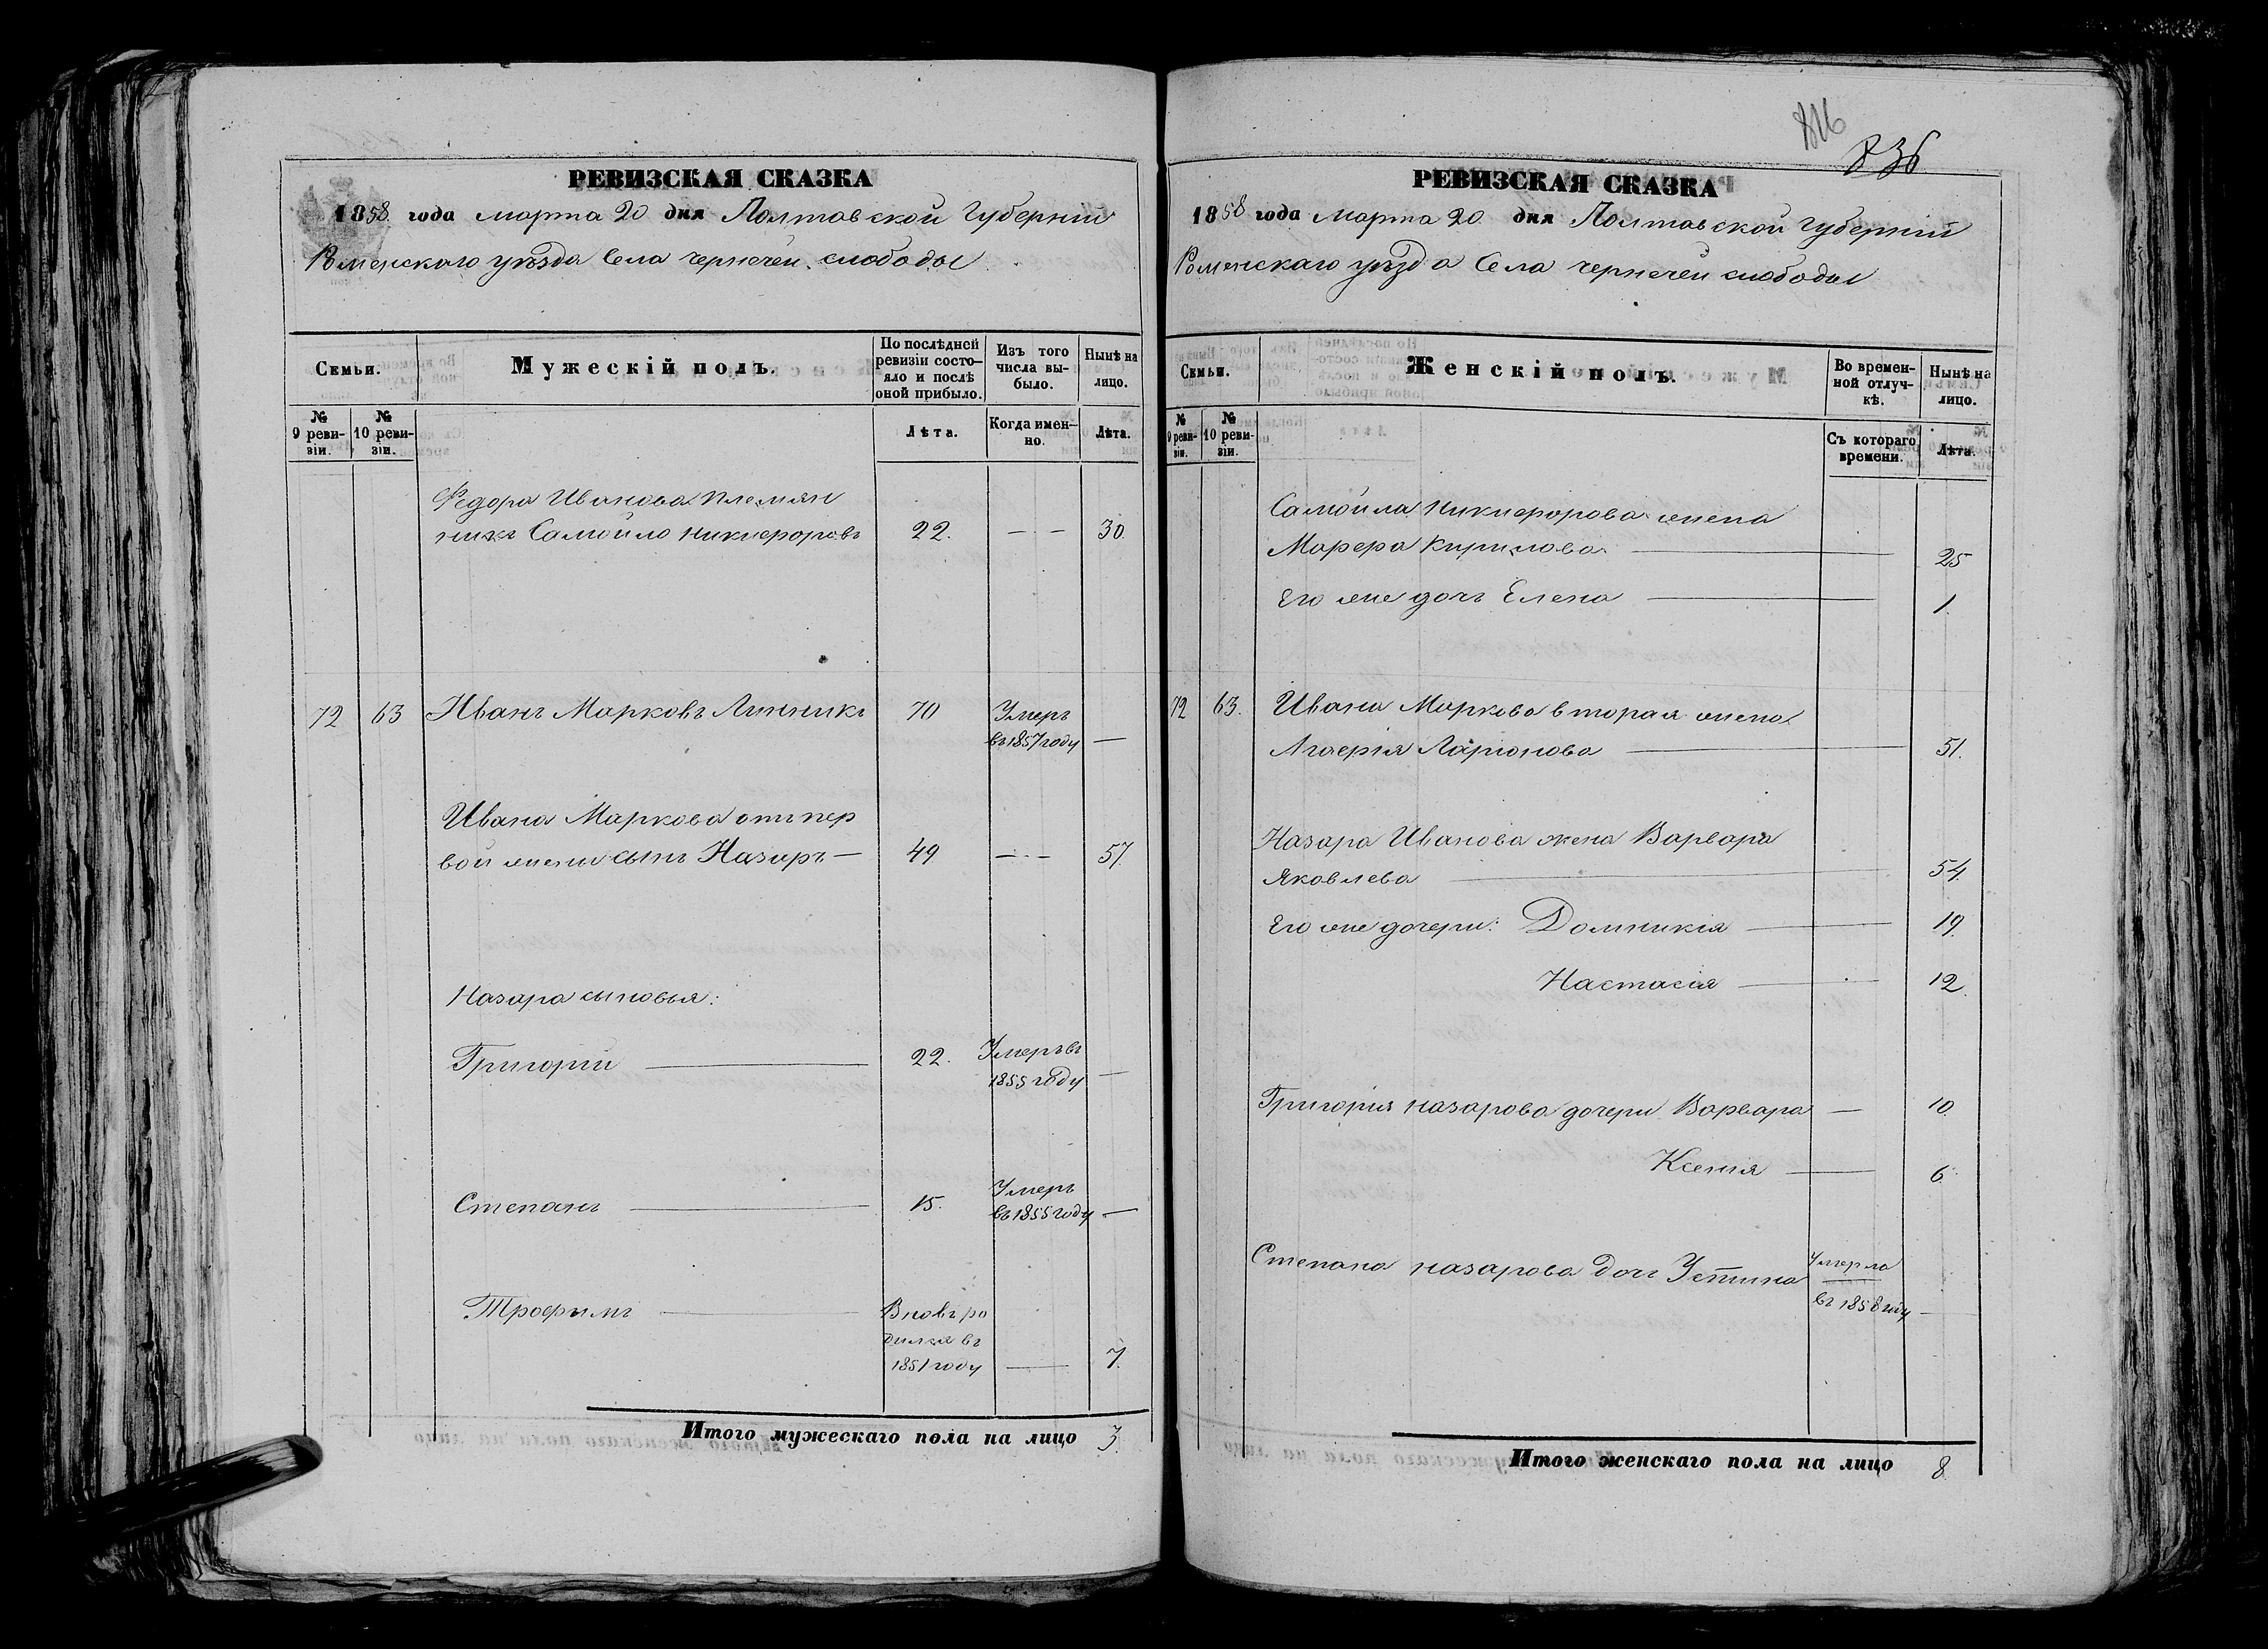 816
836
РЕВИЗСКАЯ СКАЗКА
1858 года Марта 20 дня Полтавской Губерніи
Роменскаго уѣзда Села чернечей слободы
Семьи.
Мужескій полъ.
По послѣдней ревизіи состо-яло и послѣ оной прибыло.
Изъ того числа вы-было.
Нынѣ на лицо.
№ 9 реви-зіи.
№ 10 реви-зіи.
Лѣта.
Когда имен-но.
Лѣта.
Федора Иванова племян
никъ Самойло Никифоровъ 22. — — 30.
72 63 Иванъ Марковъ Линникъ 70 Умеръ
въ 1857 году —
Ивана Маркова отъ пер
вой жены сынъ Назаръ — 49 — — 57.
Назара сыновья:
Григорій — 22. Умеръ въ
1855 году —
Степанъ — 15. Умеръ
въ 1855 году —
Трофымъ — Вновь ро
дился въ
1851 году — 7.
Итого мужескаго пола на лицо 3
РЕВИЗСКАЯ СКАЗКА
1858 года Марта 20 дня Полтавской Губерніи
Роменскаго уѣзда Села чернечей слободы
Семьи.
Женскій полъ.
Во времен-ной отлуч-кѣ.
Нынѣ на лицо.
№ 9 реви-зіи.
№ 10 реви-зіи.
Съ котораго времени.
Лѣта.
Самойла Никифорова жена
Марфа Кирилова — 25
Его же дочь Елена — 1.
72 63. Ивана Маркова вторая жена
Агафія Ларіонова — 51.
Назара Иванова жена Варвара
Яковлева — 54.
Его же дочери: Домникія — 19.
Настасія — 12.
Григорія Назарова дочери Варвара — 10.
Ксенія — 6.
Степана Назарова дочь Устина Умерла
въ 1858 году —
Итого женскаго пола на лицо 8.